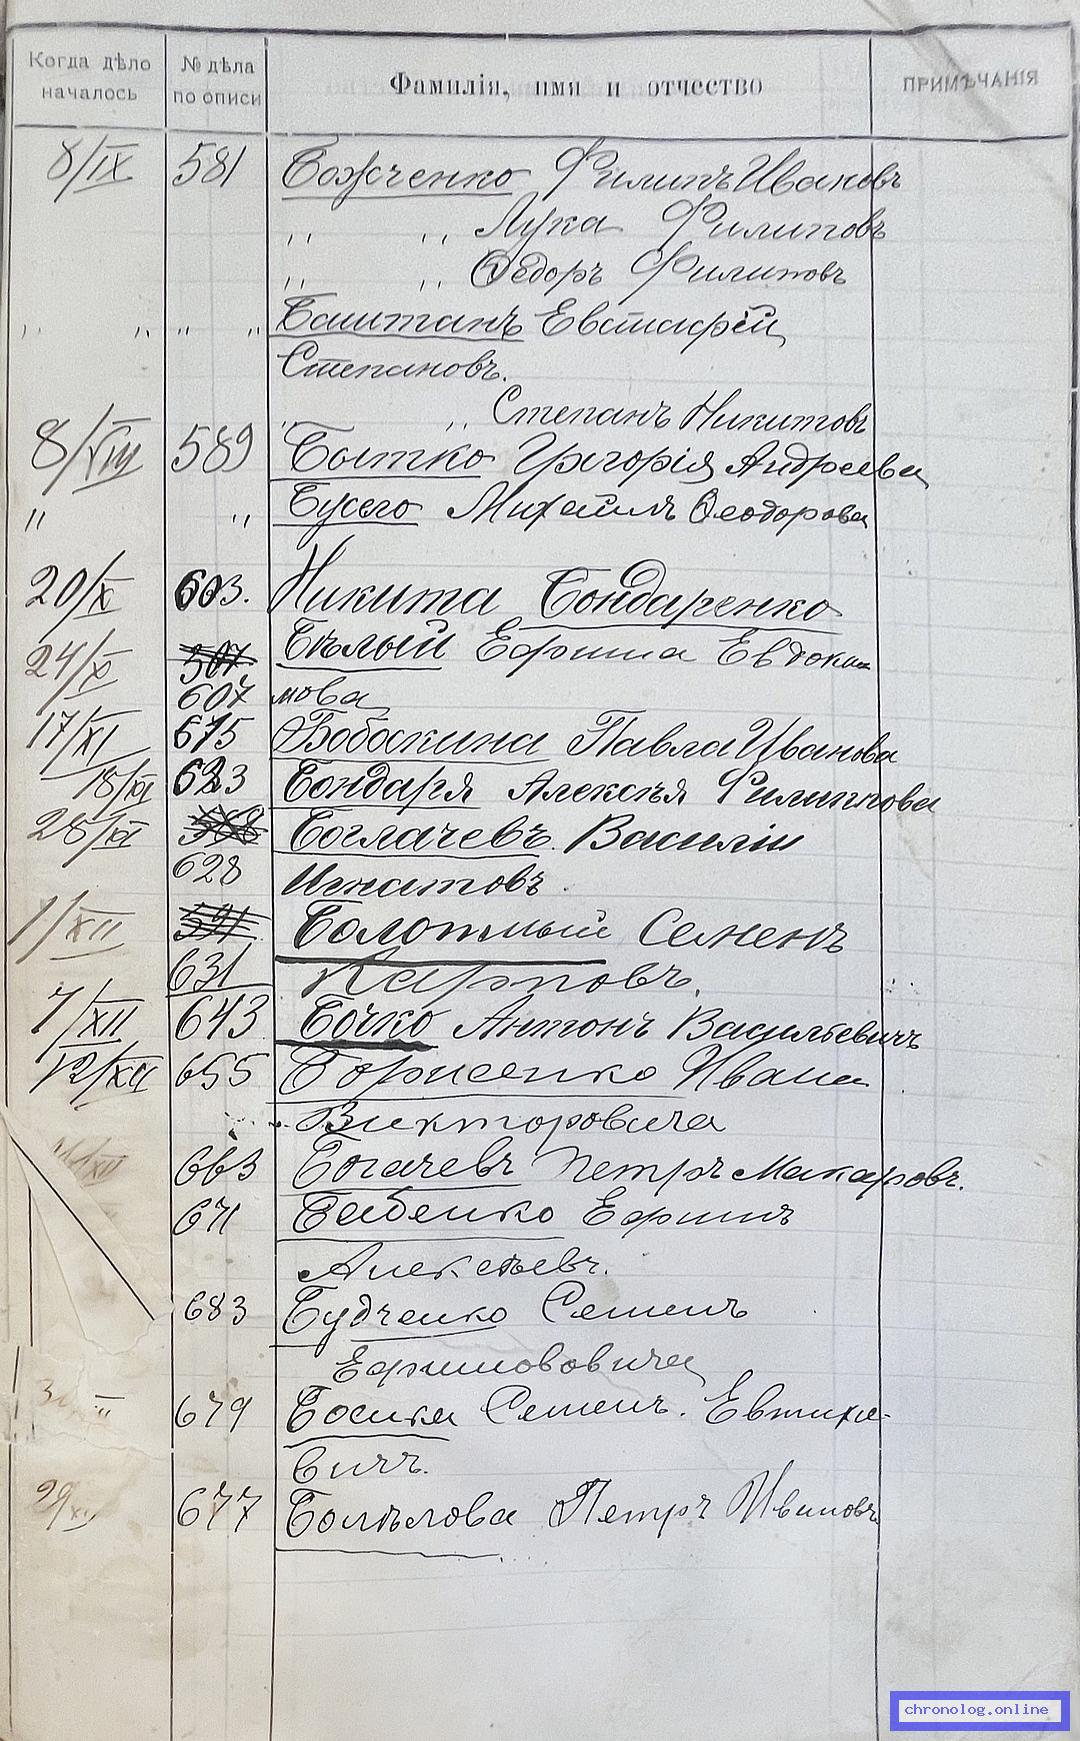 Когда дѣло началось № дѣла по описи Фамилія, имя и отчество ПРИМѢЧАНІЯ
8/IX 581 Божченко Филипъ Ивановъ
" " Лука Филиповъ
" " Ѳедоръ Филиповъ
" " " " Баштанъ Евстафій
Степановъ.
" " Степанъ Никитовъ
8/VIII 589 Бытко Григорія Андреева
" " Бусего Михаилъ Ѳеодорова
20/X 603. Никита Бондаренко
24/X 507 Бѣлый Ефима Евдоки
607 мова
17/XI 615 Бобоскина Павла Иванова
18/XI 623 Бондаря Алексѣя Филиппова
28/XI 568 Боглачевъ Василій
628 Игнатовъ.
1/XII 591 Болотный Семенъ
631 Карповъ.
7/XII 643 Бочко Антонъ Васильевичъ
12/XII 655 Борисенко Ивана
Викторовича
663 Богачевъ Петръ Макаровъ.
671 Бабенко Ефимъ
Алексѣевъ.
683 Будченко Семенъ
Ефимововича
679 Босика Семенъ. Евтихе-
вичъ.
677 Петръ Ивановъ
chronolog.online